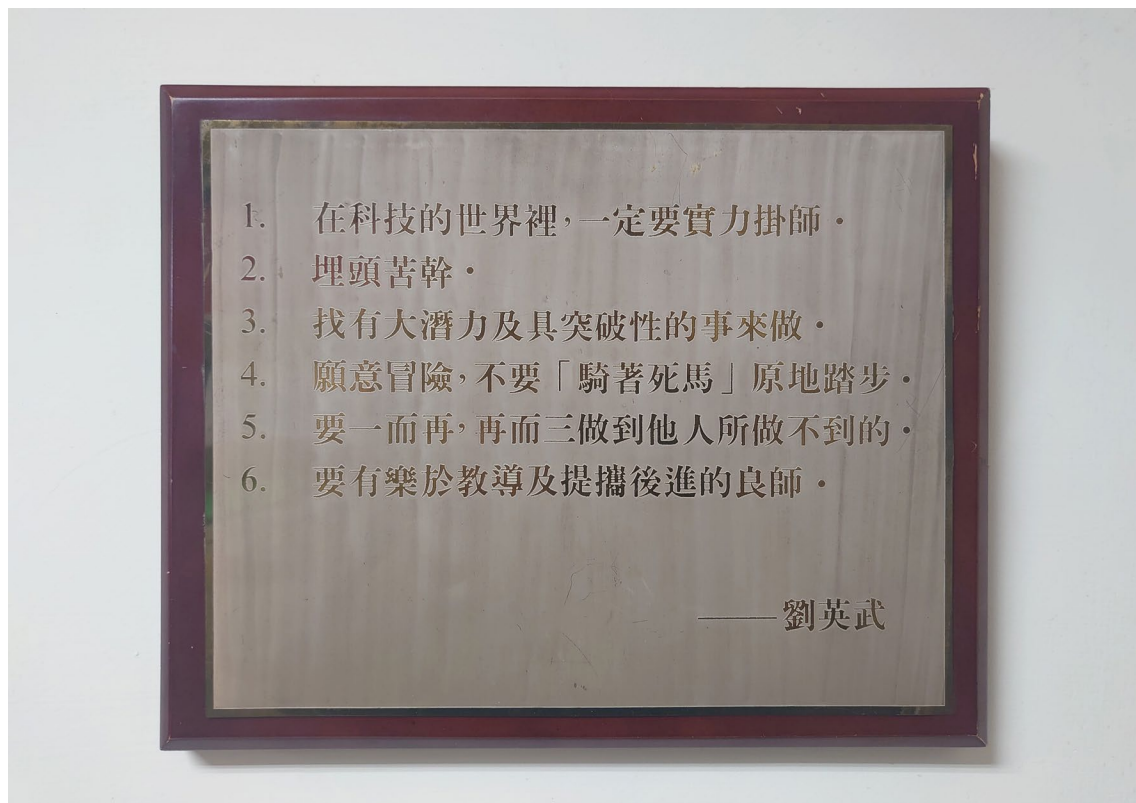 1. 在科技的世界裡，一定要實力掛師．
2. 埋頭苦幹．
3. 找有大潛力及具突破性的事來做．
4. 願意冒險，不要「騎著死馬」原地踏步．
5. 要一而再，再而三做到他人所做不到的．
6. 要有樂於教導及提攜後進的良師．
——劉英武